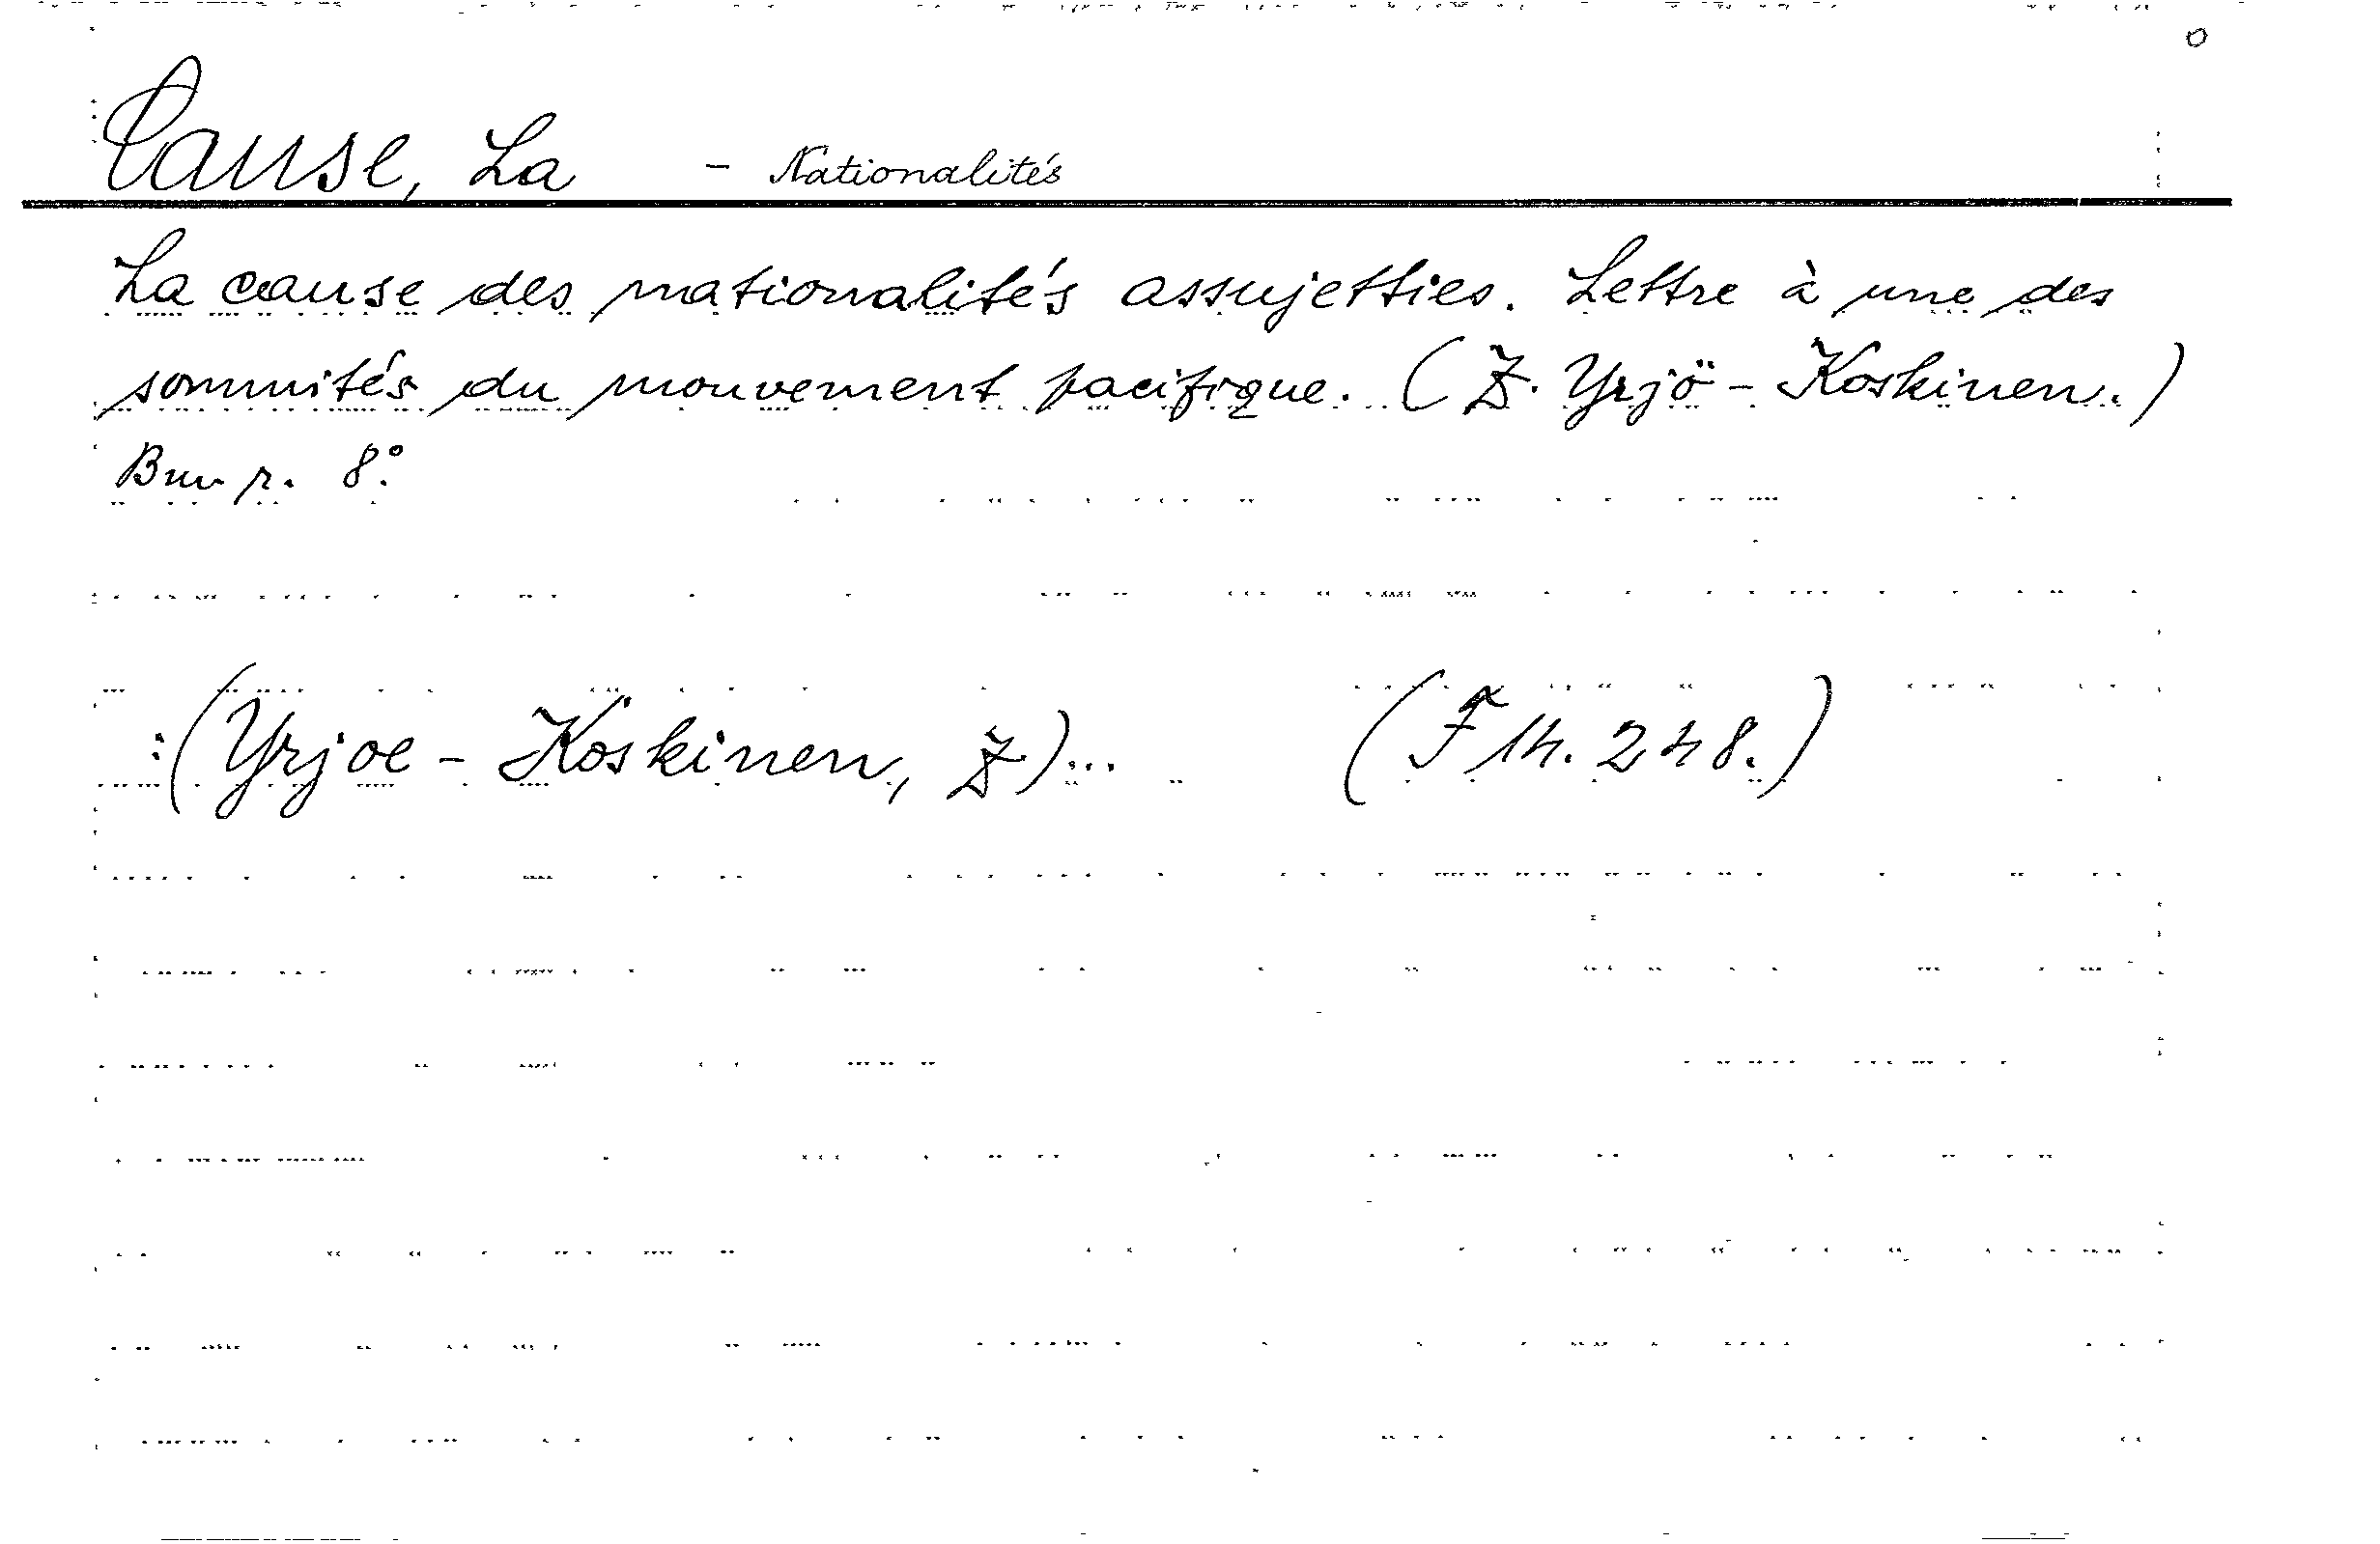 Cause, La - Nationalités
La cause des nationalités assujetties. Lettre à une des
sommités du mouvement pacifique. (Z. Yrjö-Koskinen.)
8:o
:(Yrjoe-Koskinen, Z)... (F 14. 248.)